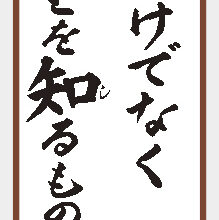 けでなく
を知るもの